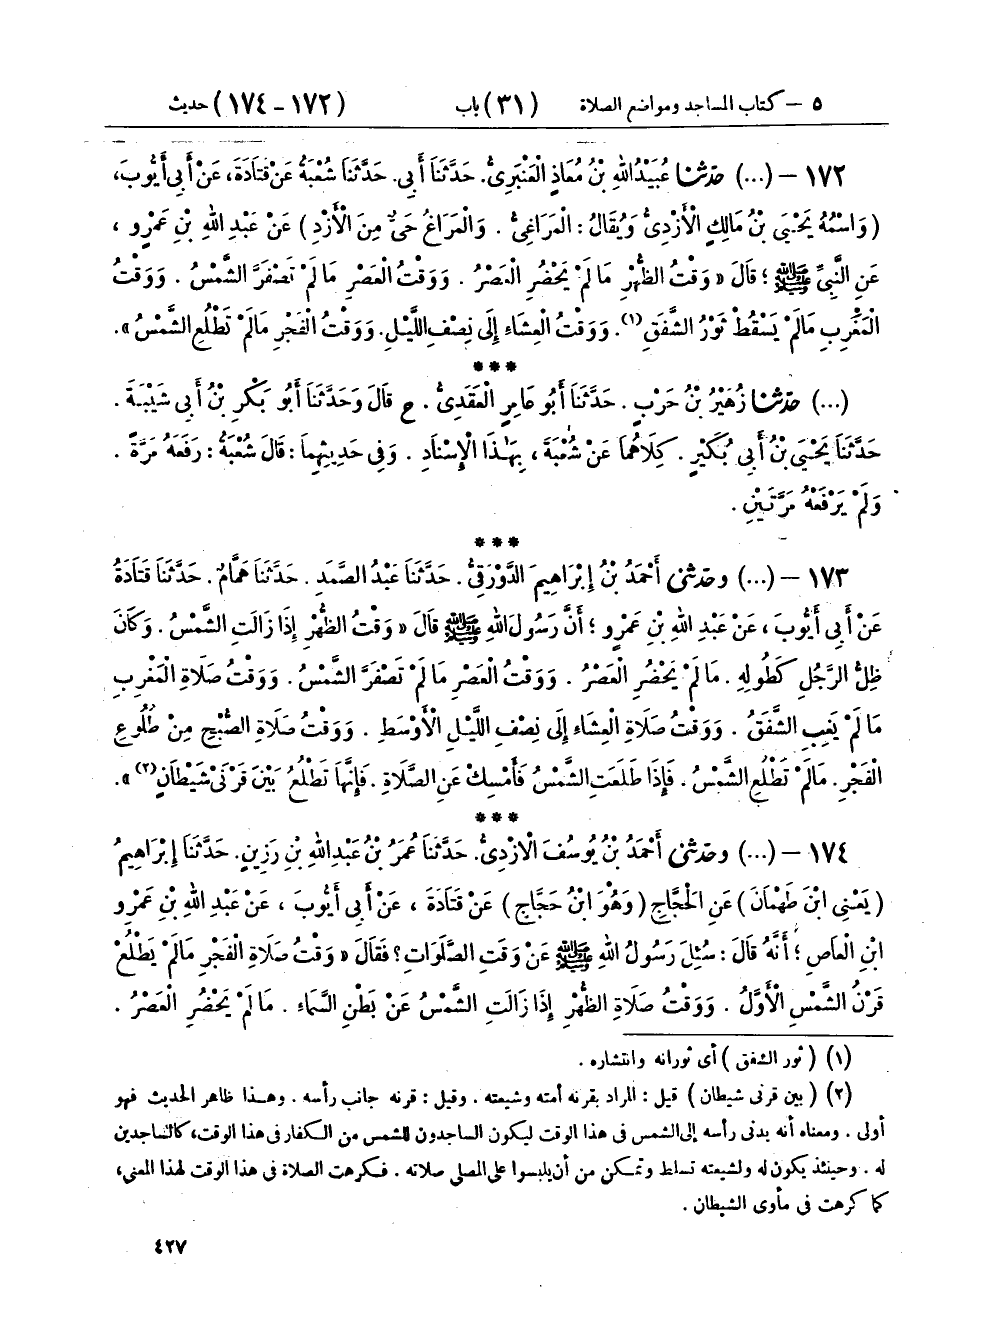 ٥ – كتاب المساجد ومواضع الصلاة (٣١) باب (١٧٢-١٧٤) حديث
١٧٢ – (...) حدثنا عُبَيْدُ اللهِ بْنُ مُعَاذٍ الْعَنْبَرِىُّ. حَدَّثَنَا أَبِى. حَدَّثَنَا شُعْبَةُ عَنْ قَتَادَةَ، عَنْ أَبِى أَيُّوبَ،
(وَاسْمُهُ يَحْيَىٰ بْنُ مَالِكٍ الْأَزْدِىُّ وَيُقَالُ: الْمَرَاغِىُّ. وَالْمَرَاغُ حَىٌّ مِنَ الْأَزْدِ) عَنْ عَبْدِ اللهِ بْنِ عَمْرٍو،
عَنِ النَّبِىِّ ﷺ؛ قَالَ «وَقْتُ الظُّهْرِ مَا لَمْ يَحْضُرِ الْعَصْرُ. وَوَقْتُ الْعَصْرِ مَا لَمْ تَصْفَرَّ الشَّمْسُ. وَوَقْتُ
الْمَغْرِبِ مَا لَمْ يَسْقُطْ ثَوْرُ الشَّفَقِ(١). وَوَقْتُ الْعِشَاءِ إِلَى نِصْفِ اللَّيْلِ. وَوَقْتُ الْفَجْرِ مَا لَمْ تَطْلُعِ الشَّمْسُ».
***
(...) حدثنا زُهَيْرُ بْنُ حَرْبٍ. حَدَّثَنَا أَبُو عَامِرٍ الْعَقَدِىُّ. ح قَالَ وَحَدَّثَنَا أَبُو بَكْرِ بْنُ أَبِى شَيْبَةَ.
حَدَّثَنَا يَحْيَىٰ بْنُ أَبِى بُكَيْرٍ. كِلَاهُمَا عَنْ شُعْبَةَ، بِهَٰذَا الْإِسْنَادِ. وَفِى حَدِيثِهِمَا: قَالَ شُعْبَةُ: رَفَعَهُ مَرَّةً.
وَلَمْ يَرْفَعْهُ مَرَّتَيْنِ.
***
١٧٣ – (...) وحدثنى أَحْمَدُ بْنُ إِبْرَاهِيمَ الدَّوْرَقِىُّ. حَدَّثَنَا عَبْدُ الصَّمَدِ. حَدَّثَنَا هَمَّامٌ. حَدَّثَنَا قَتَادَةُ
عَنْ أَبِى أَيُّوبَ، عَنْ عَبْدِ اللهِ بْنِ عَمْرٍو؛ أَنَّ رَسُولَ اللهِ ﷺ قَالَ «وَقْتُ الظُّهْرِ إِذَا زَالَتِ الشَّمْسُ. وَكَانَ
ظِلُّ الرَّجُلِ كَطُولِهِ. مَا لَمْ يَحْضُرِ الْعَصْرُ. وَوَقْتُ الْعَصْرِ مَا لَمْ تَصْفَرَّ الشَّمْسُ. وَوَقْتُ صَلَاةِ الْمَغْرِبِ
مَا لَمْ يَغِبِ الشَّفَقُ. وَوَقْتُ صَلَاةِ الْعِشَاءِ إِلَى نِصْفِ اللَّيْلِ الْأَوْسَطِ. وَوَقْتُ صَلَاةِ الصُّبْحِ مِنْ طُلُوعِ
الْفَجْرِ. مَا لَمْ تَطْلُعِ الشَّمْسُ. فَإِذَا طَلَعَتِ الشَّمْسُ فَأَمْسِكْ عَنِ الصَّلَاةِ. فَإِنَّهَا تَطْلُعُ بَيْنَ قَرْنَىْ شَيْطَانٍ(٢)».
***
١٧٤ – (...) وحدثنى أَحْمَدُ بْنُ يُوسُفَ الْأَزْدِىُّ. حَدَّثَنَا عُمَرُ بْنُ عَبْدِ اللهِ بْنِ رَزِينٍ. حَدَّثَنَا إِبْرَاهِيمُ
(يَعْنِى ابْنَ طَهْمَانَ) عَنِ الْحَجَّاجِ (وَهُوَ ابْنُ حَجَّاجٍ) عَنْ قَتَادَةَ، عَنْ أَبِى أَيُّوبَ، عَنْ عَبْدِ اللهِ بْنِ عَمْرِو
ابْنِ الْعَاصِ؛ أَنَّهُ قَالَ: سُئِلَ رَسُولُ اللهِ ﷺ عَنْ وَقْتِ الصَّلَوَاتِ؟ فَقَالَ «وَقْتُ صَلَاةِ الْفَجْرِ مَا لَمْ يَطْلُعْ
قَرْنُ الشَّمْسِ الْأَوَّلُ. وَوَقْتُ صَلَاةِ الظُّهْرِ إِذَا زَالَتِ الشَّمْسُ عَنْ بَطْنِ السَّمَاءِ. مَا لَمْ يَحْضُرِ الْعَصْرُ.
(١) (ثور الشفق) أى ثورانه وانتشاره.
(٢) (بين قرنى شيطان) قيل: المراد بقرنه أمته وشيعته. وقيل: قرنه جانب رأسه. وهذا ظاهر الحديث فهو
أولى. ومعناه أنه يدنى رأسه إلى الشمس فى هذا الوقت ليكون الساجدون للشمس من الكفار فى هذا الوقت، كالساجدين
له. وحينئذ يكون له ولشيعته تسلط وتمكن من أن يلبسوا على المصلى صلاته. فكرهت الصلاة فى هذا الوقت لهذا المعنى،
كما كرهت فى مأوى الشيطان.
٤٢٧